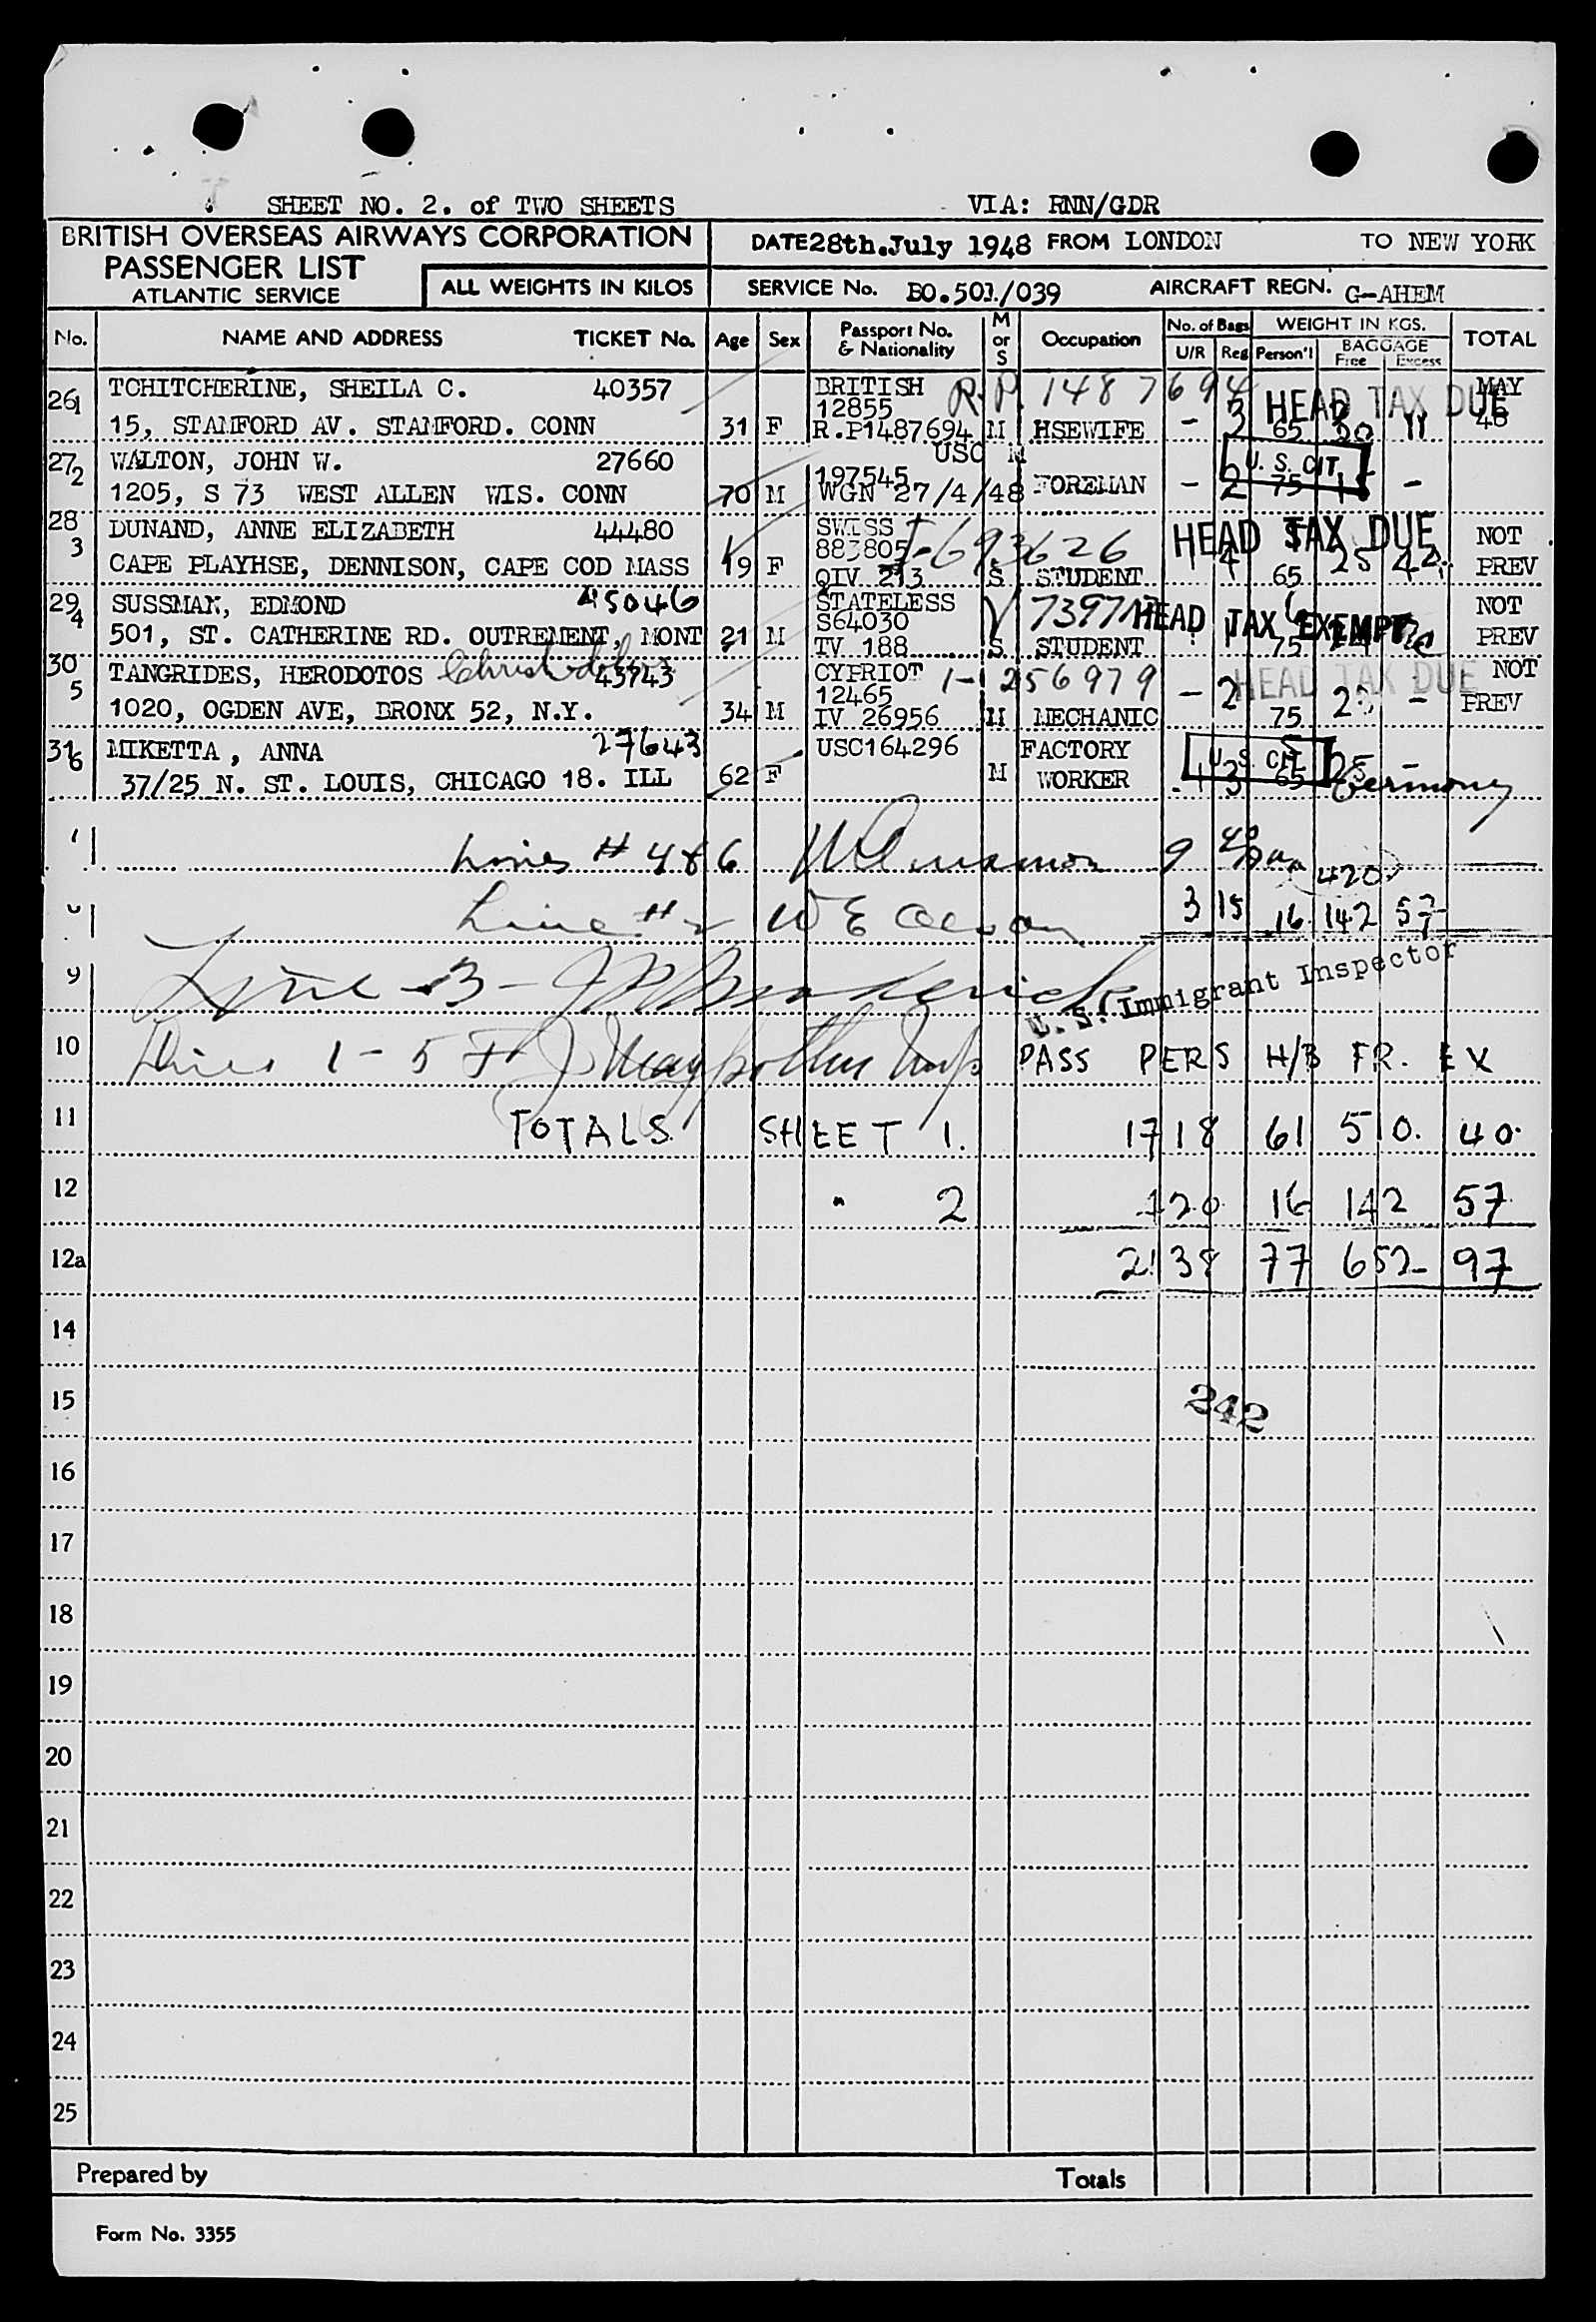 SHEET NO. 2. of TWO SHEETS VIA: RNN/GDR
BRITISH OVERSEAS AIRWAYS CORPORATION
PASSENGER LIST
ATLANTIC SERVICE
ALL WEIGHTS IN KILOS
DATE 28th.July 1948 FROM LONDON TO NEW YORK
SERVICE No. BO.501/039 AIRCRAFT REGN. G-AHEM
No. NAME AND ADDRESS TICKET No. Age Sex Passport No. & Nationality M or S Occupation No. of Bags U/R Reg WEIGHT IN KGS. Person'l BAGGAGE Free Excess TOTAL
26 1 TCHITCHERINE, SHEILA C. 40357 BRITISH R.P. 1487694 HEAD TAX DUE MAY
12855 48
15, STAMFORD AV. STAMFORD. CONN 31 F R.P1487694 M HSEWIFE - 3 65 11
27 2 WALTON, JOHN W. 27660 USC M U. S. CIT.
197545
1205, S 73 WEST ALLEN WIS. CONN 70 M WGN 27/4/48 FOREMAN - 2 75 -
28 3 DUNAND, ANNE ELIZABETH 44480 SWISS I-693626 HEAD TAX DUE NOT
883805
CAPE PLAYHSE, DENNISON, CAPE COD MASS 19 F QIV 213 S STUDENT 1 4 65 25 42 PREV
29 4 SUSSMAN, EDMOND 45046 STATELESS HEAD TAX EXEMPT NOT
S64030
501, ST. CATHERINE RD. OUTREMENT, MONT 21 M TV 188 S STUDENT 1 1 75 PREV
30 5 TANGRIDES, HERODOTOS 43743 CYPRIOT 1-1256979 HEAD TAX DUE NOT
12465
1020, OGDEN AVE, BRONX 52, N.Y. 34 M IV 26956 M MECHANIC - 2 75 - PREV
31 6 MIKETTA, ANNA 27643 USC164296 FACTORY U. S. CIT.
37/25 N. ST. LOUIS, CHICAGO 18. ILL 62 F M WORKER 1 3 65 25 Germany
Lines # 4 & 6 420
Line # 2 W E 3 15 16 142 57
9 Line 3 - J P Broderick
U. S. Immigrant Inspector
10 Lines 1 - 5 PASS PERS H/B FR. EX
11 TOTALS SHEET 1. 1718 61 510. 40.
12 " 2 420 16 142 57
12a 2138 77 652 97
14
15 242
16
17
18
19
20
21
22
23
24
25
Prepared by Totals
Form No. 3355